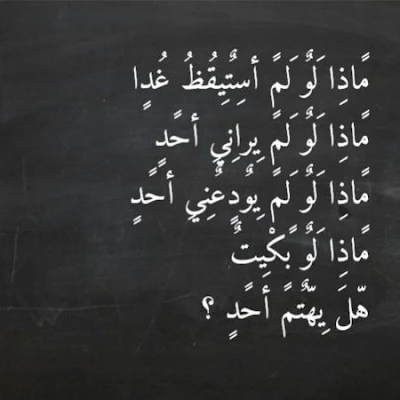 مًاذِا لَوٌ لَمً أسِتٌيِقُظُ غُدٍا
مًاذِا لَوٌ لَمً يِرانِيِ أحًدٍ
مًاذِا لَوٌ لَمً يِوٌدٍعٌنِيِ أحًدٍ
مًاذِا لَوٌ بًكْيِتٌ
هّلَ يِهّتٌمً أحًدٍ ؟